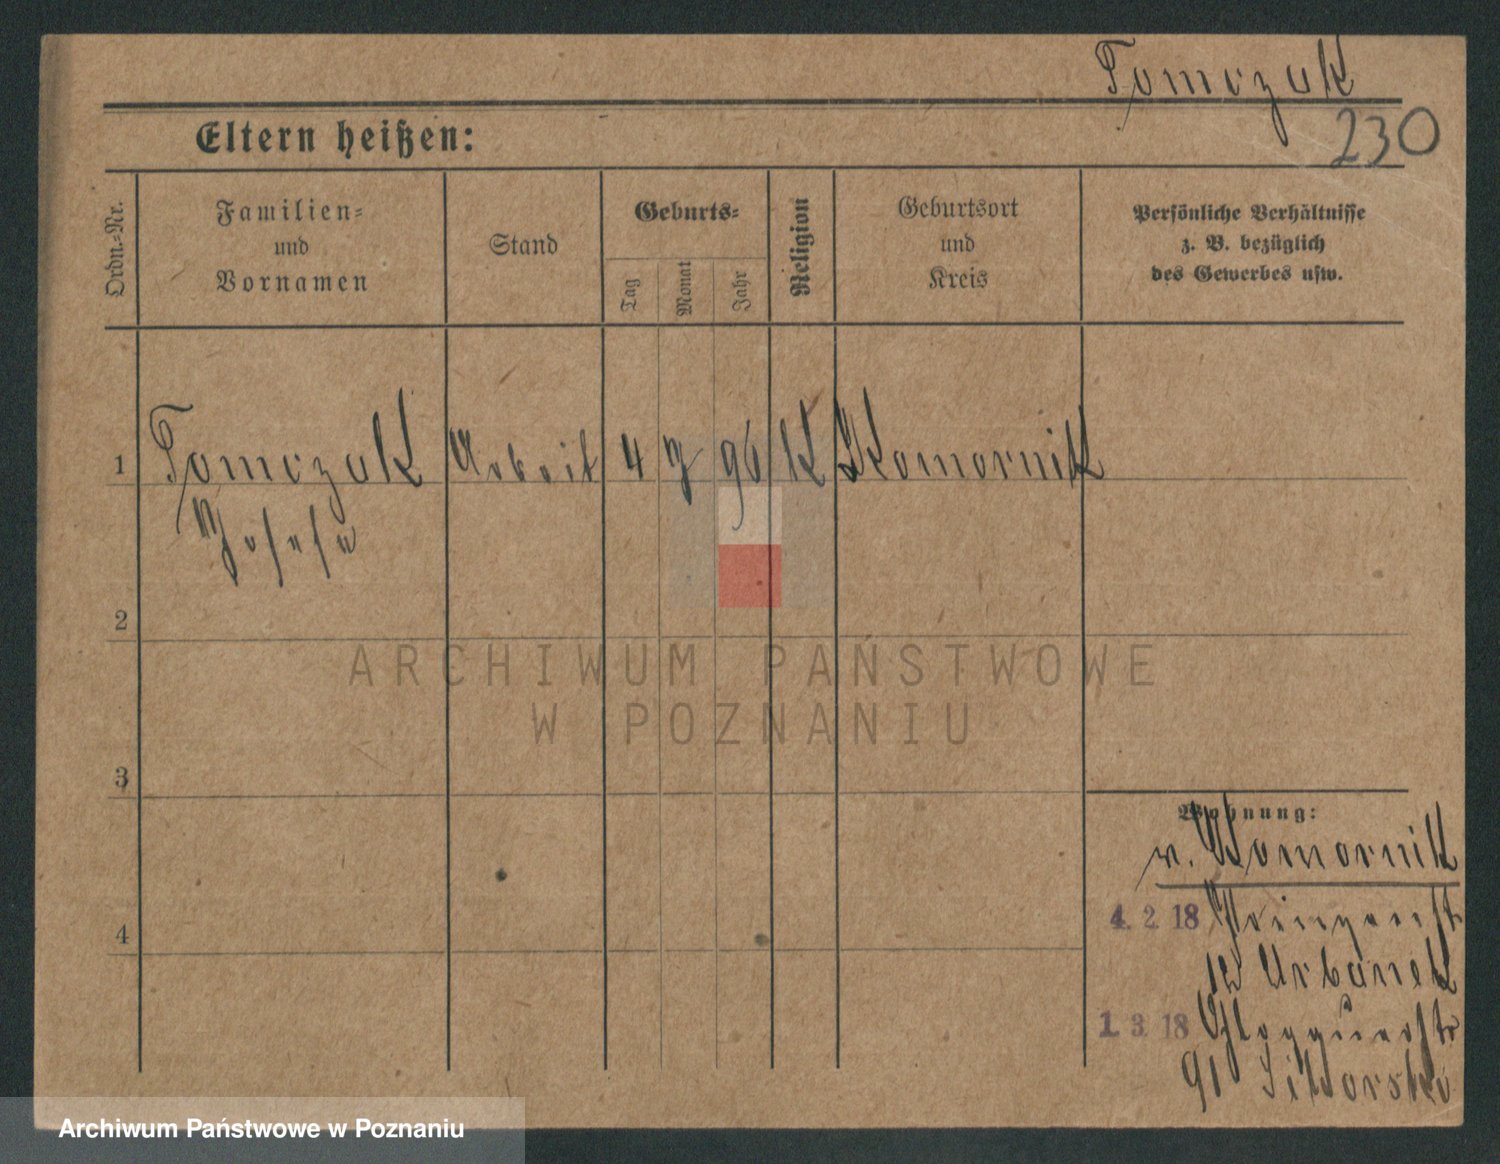 Tomczak
230
Eltern heißen:
Ordn.-Nr.
Familien-
und
Vornamen
Stand
Geburts-
Tag
Monat
Jahr
Religion
Geburtsort
und
Kreis
Persönliche Verhältnisse
z. B. bezüglich
des Gewerbes usw.
1 Tomczak Arbeit 4 96 K Komornik
Josefa
2
ARCHIWUM PAŃSTWOWE
W POZNANIU
3
Wohnung:
v. Komornik
4
4. 2 18 Prinzenst
12 Urbanek
1. 3. 18 Glogauerstr
91 Sikorski
Archiwum Państwowe w Poznaniu